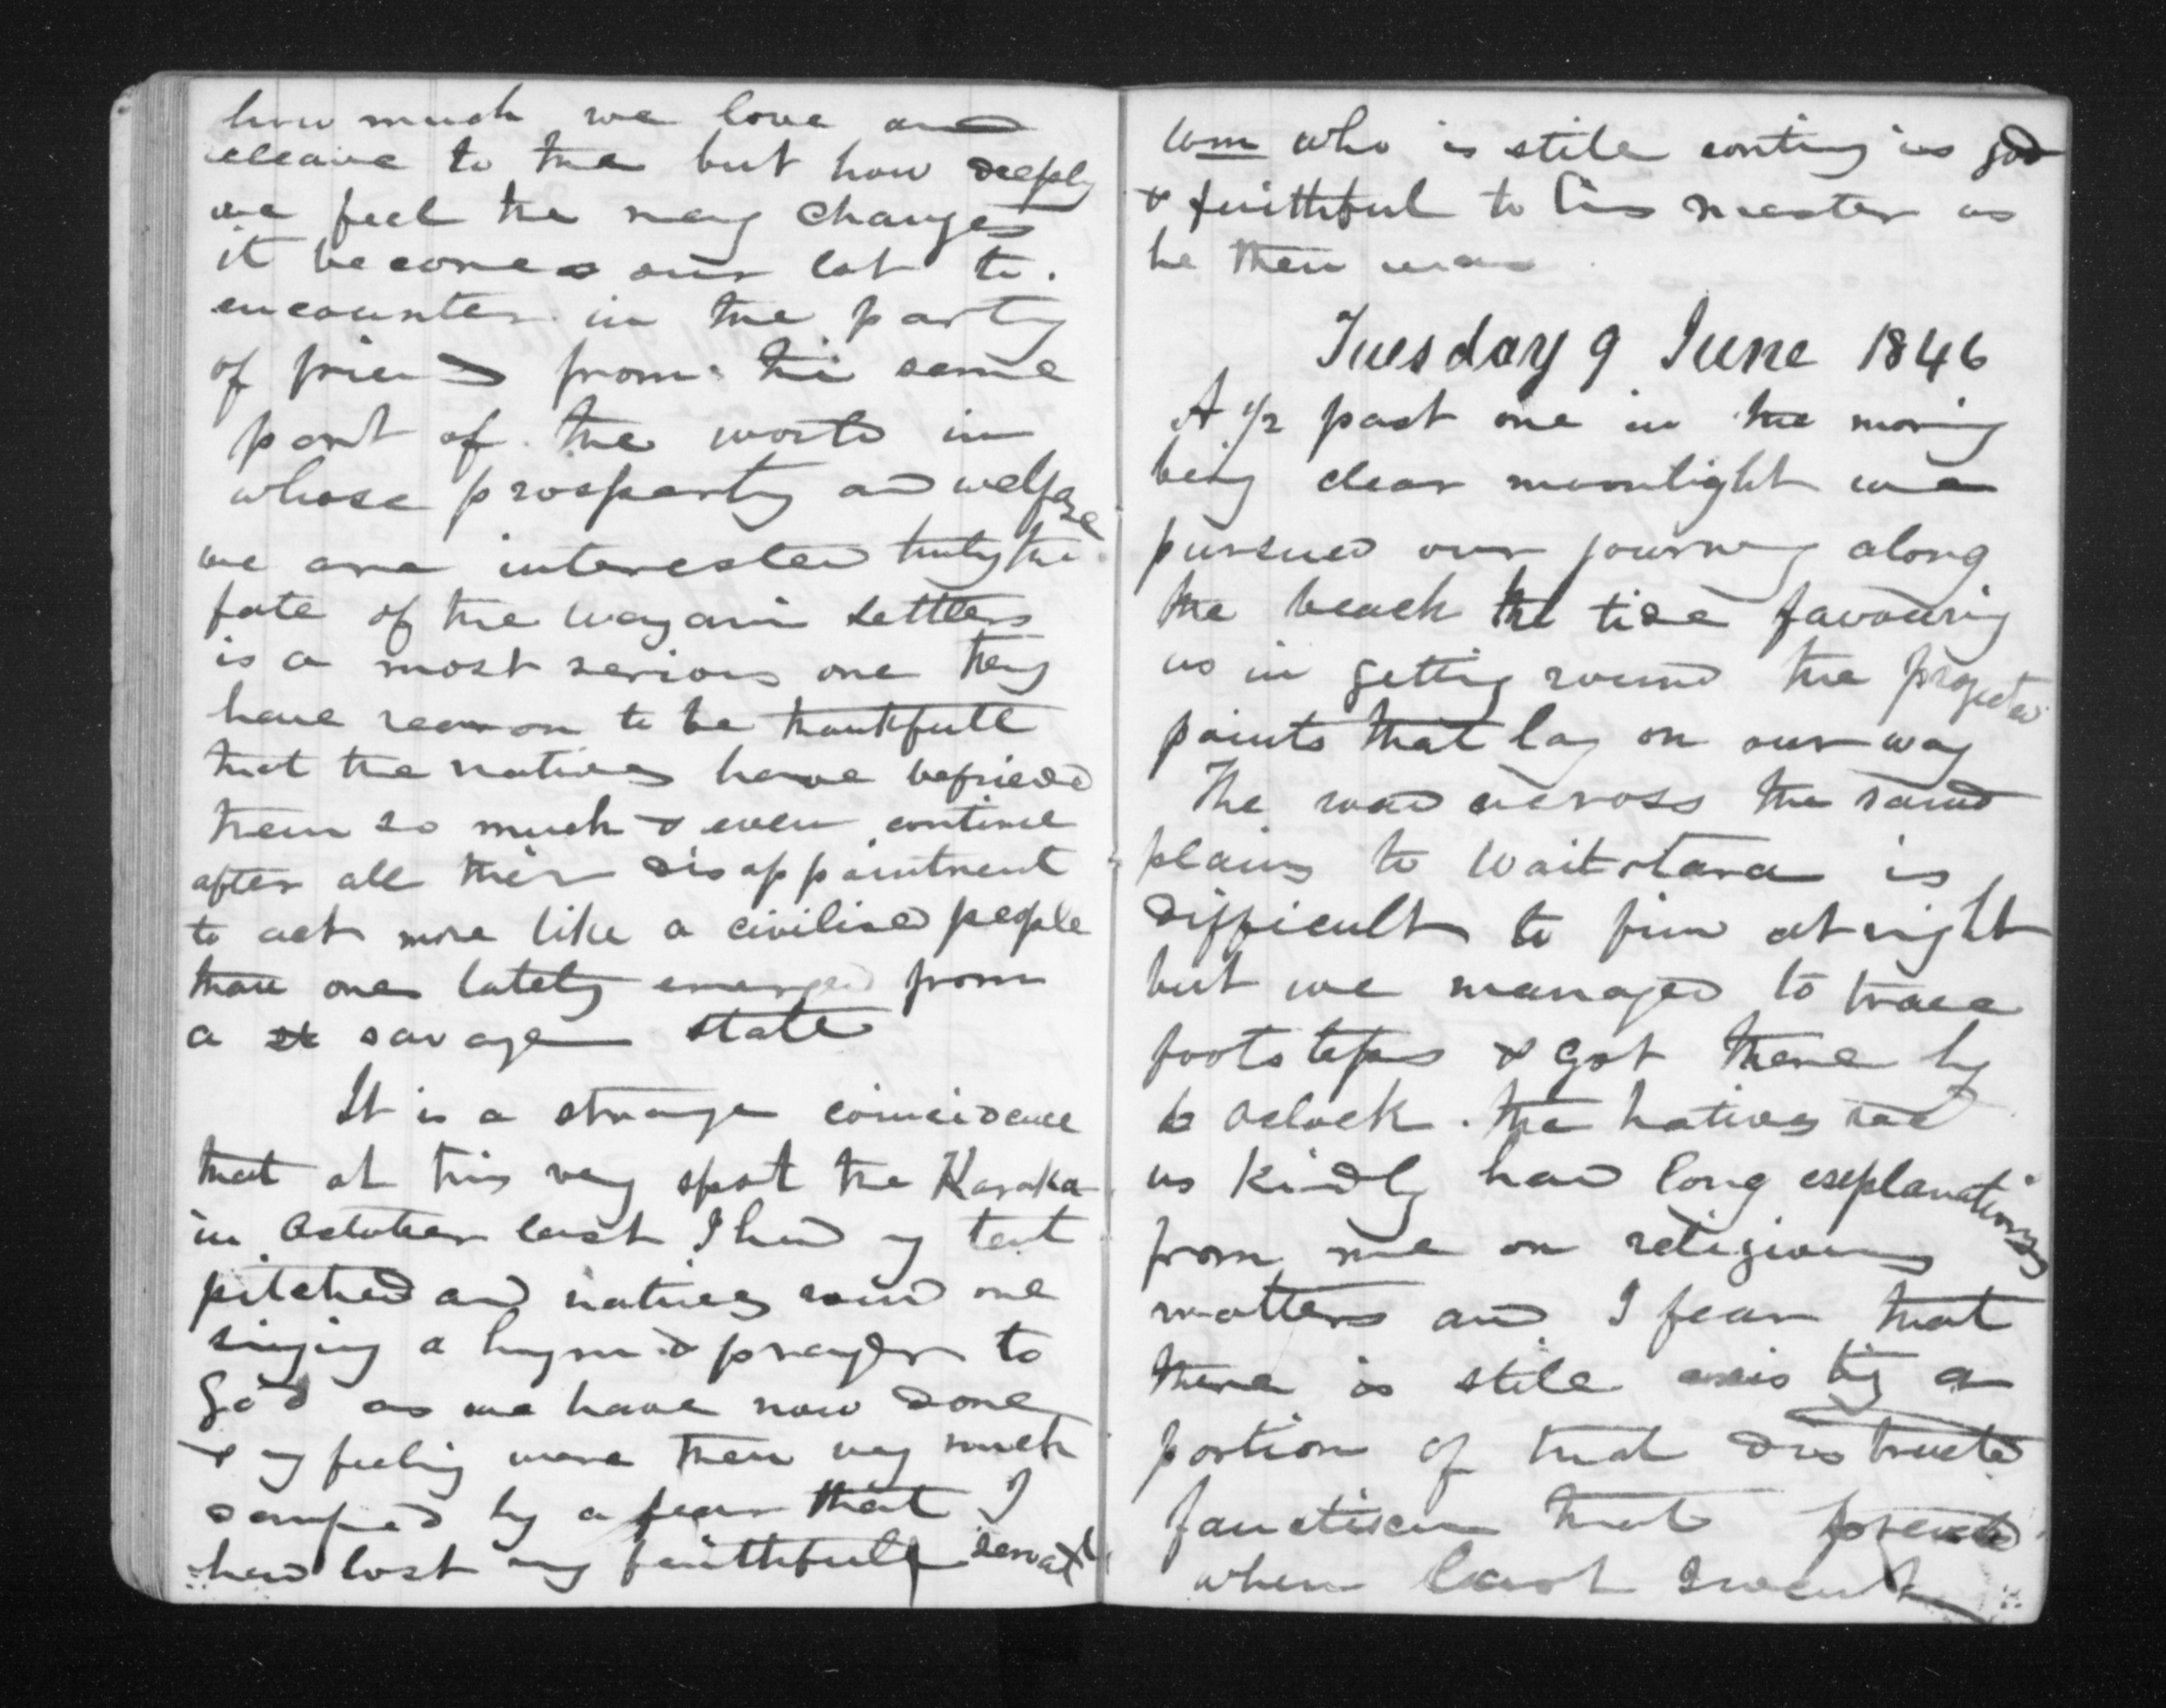 how much we love and
cleave to them but how deeply
we feel the many changes
it becomes our lot to
encounter in the party
of friends from the same
part of the world in
whose prosperty and welfare
we are interested truly the
fate of the settlers
is a most serious one they
have reason to be thankfull
that the natives have befriended
them so much & even continue
after all their disappointment
to act more like a civilised people
than one lately emerged from
a savage state
It is a strange coincidence
that at this very spot the Karaka
in October last I had my tent
pitched and natives round me
singing a hymn & prayer to
God as we have now done
& my feeling were then very much
damped by a fear that I
had lost my faithfull servant
Wm who is stile as good
& faithful to his master as
he then was
Tuesday 9 June 1846
A ½ past one in the morning
being clear moonlight we
pursued our journey along
the beach the tide favouring
us in getting round the projected
points that lay on our way
The road across the sand
plains to Waitotara is
difficult to find at night
but we managed to trace
footsteps & got there by
6 Oclock. The natives
us kindly had long explanations
from me on religious
matters and I fear that
there is stile a
portion of that
that
when last I went